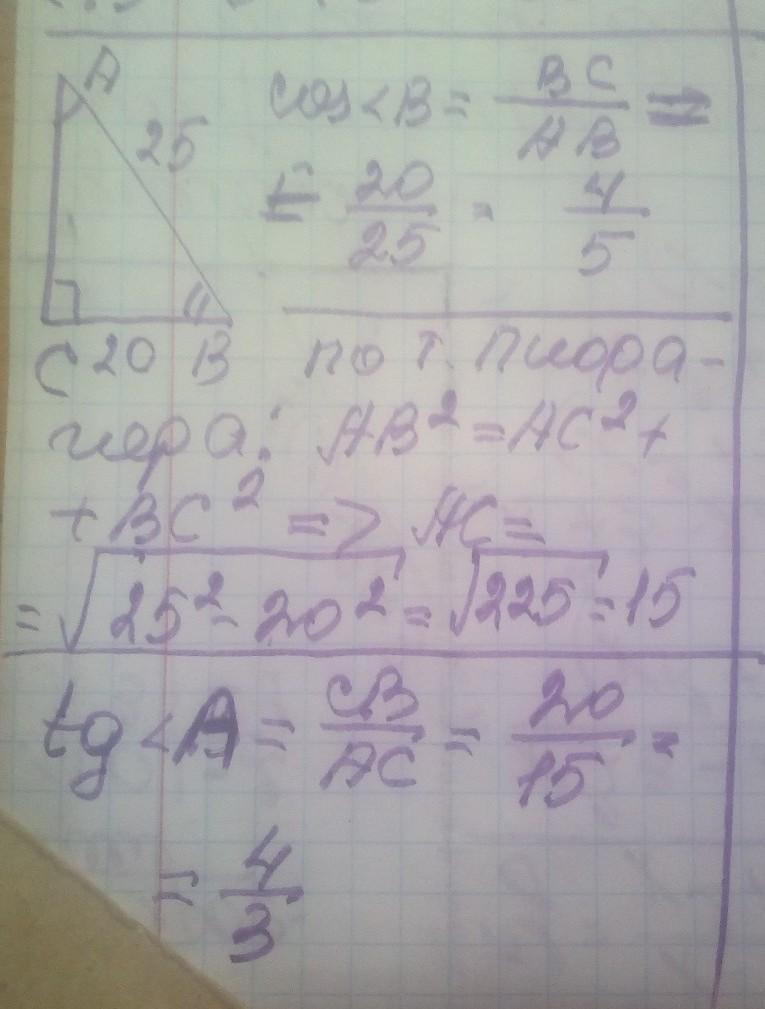 A
25
C 20 B
cos<B = BC/AB =
= 20/25 = 4/5
по т. Пифа-
гора: AB² = AC² +
+ BC² => AC =
= √25² - 20² = √225 = 15
tg <A = CB/AC = 20/15 =
= 4/3